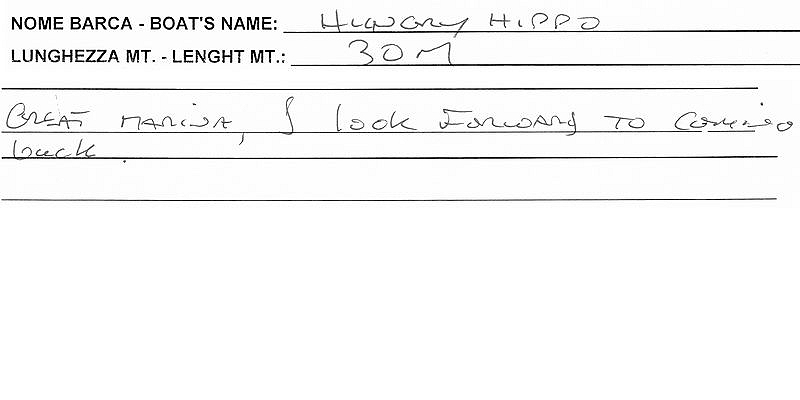 NOME BARCA - BOAT'S NAME: HUNGRY HIPPO
LUNGHEZZA MT. - LENGHT MT.: 30 M
GREAT MARINA, I look FORWARD TO COMING
back.